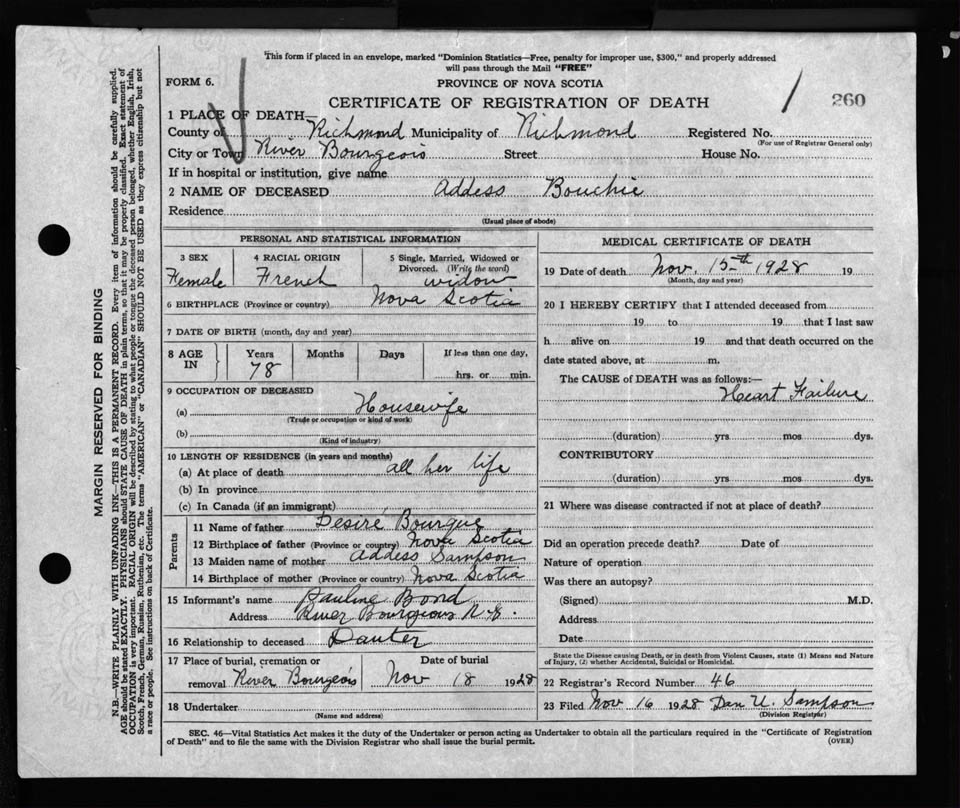 This form if placed in an envelope, marked "Dominion Statistics—Free, penalty for improper use, $300," and properly addressed
will pass through the Mail "FREE"
FORM 6.
PROVINCE OF NOVA SCOTIA
CERTIFICATE OF REGISTRATION OF DEATH
260
1 PLACE OF DEATH—
County of Richmond Municipality of Richmond Registered No.
(For use of Registrar General only)
City or Town River Bourgeois Street House No.
If in hospital or institution, give name
2 NAME OF DECEASED Addess Bouchie
Residence
(Usual place of abode)
PERSONAL AND STATISTICAL INFORMATION
3 SEX 4 RACIAL ORIGIN 5 Single, Married, Widowed or
Divorced. (Write the word)
Female French widow
6 BIRTHPLACE (Province or country) Nova Scotia
7 DATE OF BIRTH (month, day and year)
8 AGE IN Years Months Days If less than one day,
78 hrs. or min.
9 OCCUPATION OF DECEASED
(a) Housewife
(Trade or occupation or kind of work)
(b)
(Kind of industry)
10 LENGTH OF RESIDENCE (in years and months)
(a) At place of death all her life
(b) In province
(c) In Canada (if an immigrant)
Parents
11 Name of father Desiré Bourque
12 Birthplace of father (Province or country) Nova Scotia
13 Maiden name of mother Addess Sampson
14 Birthplace of mother (Province or country) Nova Scotia
15 Informant's name Pauline Bond
Address River Bourgeois N.S.
16 Relationship to deceased Dauter
17 Place of burial, cremation or Date of burial
removal River Bourgeois Nov 18 1928
18 Undertaker
(Name and address)
MEDICAL CERTIFICATE OF DEATH
19 Date of death Nov. 15th 1928 19
(Month, day and year)
20 I HEREBY CERTIFY that I attended deceased from
19 to 19 that I last saw
h alive on 19 and that death occurred on the
date stated above, at m.
The CAUSE of DEATH was as follows:—
Heart Failure
(duration) yrs mos dys.
CONTRIBUTORY
(duration) yrs mos dys.
21 Where was disease contracted if not at place of death?
Did an operation precede death? Date of
Nature of operation
Was there an autopsy?
(Signed) M.D.
Address
Date
State the Disease causing Death, or in death from Violent Causes, state (1) Means and Nature
of Injury, (2) whether Accidental, Suicidal or Homicidal.
22 Registrar's Record Number 46
23 Filed Nov 16 1928 Dan U. Sampson
(Division Registrar)
SEC. 46—Vital Statistics Act makes it the duty of the Undertaker or person acting as Undertaker to obtain all the particulars required in the "Certificate of Registration
of Death" and to file the same with the Division Registrar who shall issue the burial permit.
(OVER)
MARGIN RESERVED FOR BINDING
N.B.—WRITE PLAINLY WITH UNFADING INK—THIS IS A PERMANENT RECORD. Every item of information should be carefully supplied.
AGE should be stated EXACTLY. PHYSICIANS should STATE CAUSE OF DEATH in plain terms, so that it may be properly classified. Exact statement of
OCCUPATION is very important. RACIAL ORIGIN will be described by stating to what people or tongue the deceased person belonged, whether English, Irish,
Scotch, French, German, Russian, Ruthenian, etc. The terms "AMERICAN" or "CANADIAN" SHOULD NOT BE USED as they express citizenship but not
a race or people. See instructions on back of Certificate.